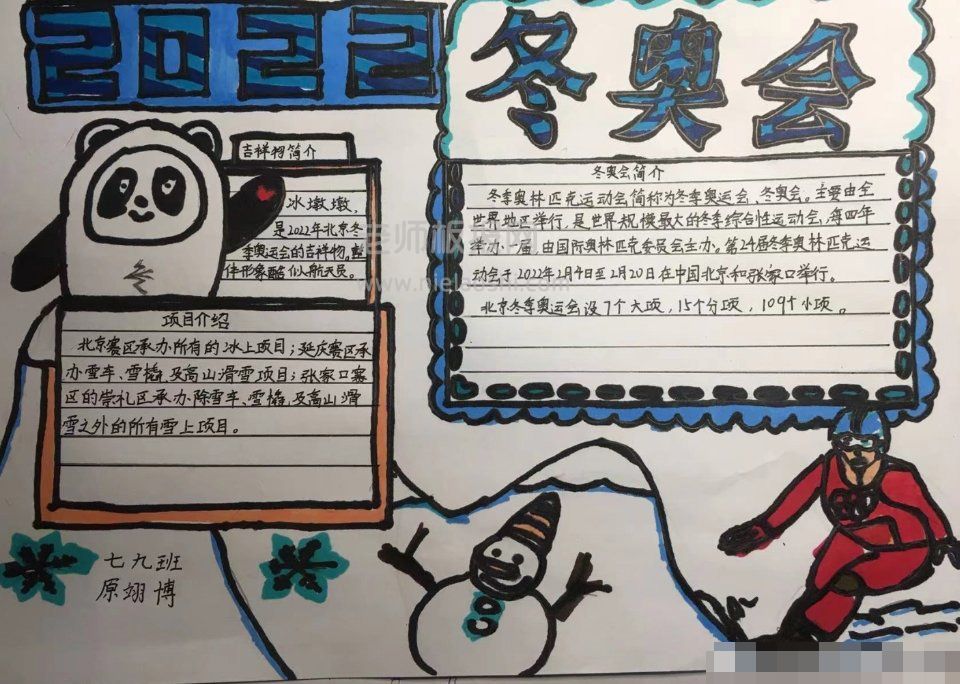 2022
冬奥会
吉祥物简介
冰墩墩，
是2022年北京冬
季奥运会的吉祥物。整
体形象酷似航天员。
冬奥会简介
冬季奥林匹克运动会简称为冬季奥运会、冬奥会。主要由全
世界地区举行，是世界规模最大的冬季综合性运动会，每四年
举办一届，由国际奥林匹克委员会主办。第24届冬季奥林匹克运
动会于2022年2月4日至2月20日在中国北京和张家口举行。
北京冬季奥运会设7个大项，15个分项，109个小项。
项目介绍
北京赛区承办所有的冰上项目；延庆赛区承
办雪车、雪橇及高山滑雪项目；张家口赛
区的崇礼区承办除雪车、雪橇及高山滑
雪之外的所有雪上项目。
七九班
原翊博
老师板报网